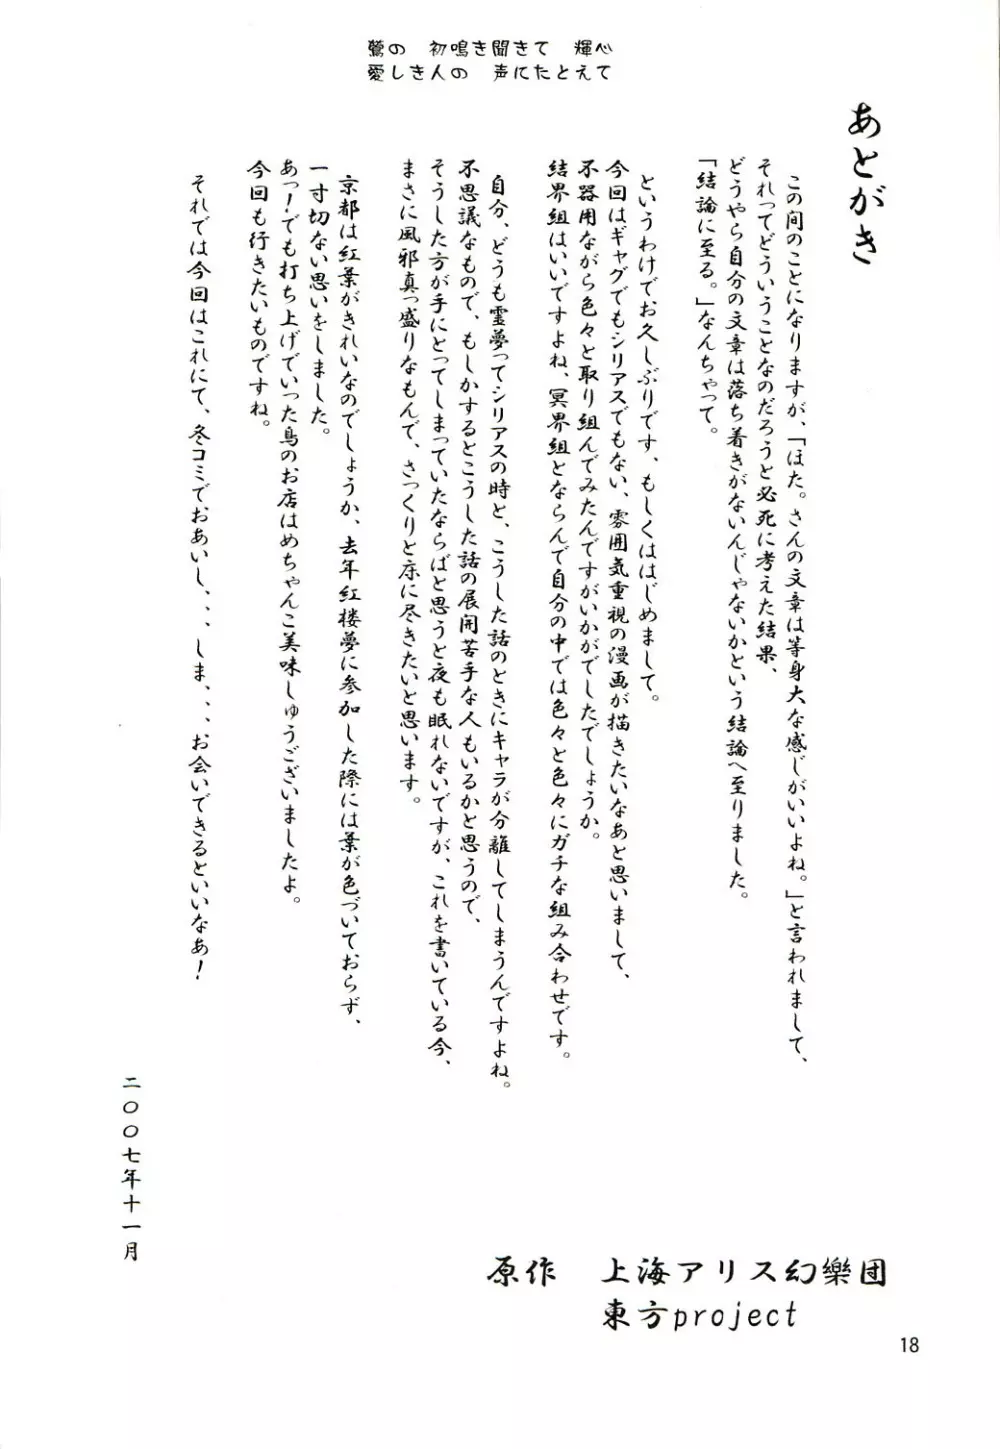 鶯の　初鳴き聞きて　輝心
愛しき人の　声にたとえて
あとがき
この間のことになりますが、「ほた。さんの文章は等身大な感じがいいよね。」と言われまして、
それってどういうことなのだろうと必死に考えた結果、
どうやら自分の文章は落ち着きがないんじゃないかという結論へ至りました。
「結論に至る。」なんちゃって。
というわけでお久しぶりです、もしくははじめまして。
今回はギャグでもシリアスでもない、雰囲気重視の漫画が描きたいなあと思いまして、
不器用ながら色々と取り組んでみたんですがいかがでしたでしょうか。
結界組はいいですよね、冥界組とならんで自分の中では色々と色々にガチな組み合わせです。
自分、どうも霊夢ってシリアスの時と、こうした話のときにキャラが分離してしまうんですよね。
不思議なもので、もしかするとこうした話の展開苦手な人もいるかと思うので、
そうした方が手にとってしまっていたならばと思うと夜も眠れないですが、これを書いている今、
まさに風邪真っ盛りなもんで、さっくりと床に尽きたいと思います。
京都は紅葉がきれいなのでしょうか、去年紅楼夢に参加した際には葉が色づいておらず、
一寸切ない思いをしました。
あっ！でも打ち上げでいった鳥のお店はめちゃんこ美味しゅうございましたよ。
今回も行きたいものですね。
それでは今回はこれにて、冬コミでおあいし、、、しま、、、お会いできるといいなあ！
二〇〇七年十一月
原作　上海アリス幻樂団
東方project
18